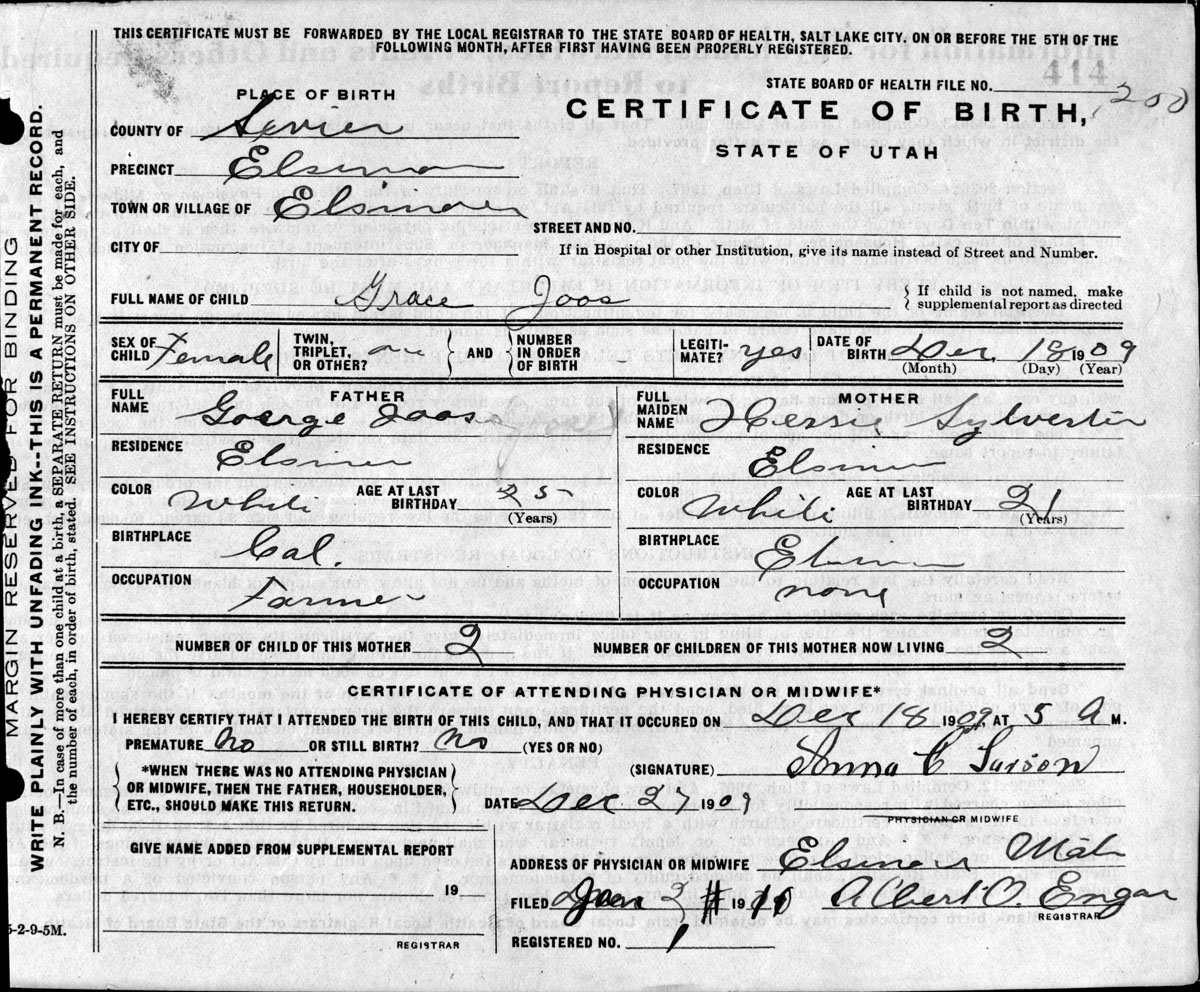 THIS CERTIFICATE MUST BE FORWARDED BY THE LOCAL REGISTRAR TO THE STATE BOARD OF HEALTH, SALT LAKE CITY, ON OR BEFORE THE 5TH OF THE
FOLLOWING MONTH, AFTER FIRST HAVING BEEN PROPERLY REGISTERED.
414
STATE BOARD OF HEALTH FILE NO. 200
PLACE OF BIRTH
CERTIFICATE OF BIRTH,
STATE OF UTAH
COUNTY OF Sevier
PRECINCT Elsinore
TOWN OR VILLAGE OF Elsinore
STREET AND NO.
CITY OF
If in Hospital or other Institution, give its name instead of Street and Number.
FULL NAME OF CHILD Grace Joos
If child is not named, make
supplemental report as directed
SEX OF CHILD Female
TWIN, TRIPLET, OR OTHER?
AND
NUMBER IN ORDER OF BIRTH
LEGITI-MATE? yes
DATE OF BIRTH Dec. 18 1909
(Month) (Day) (Year)
FATHER
FULL NAME Goerge Joos
RESIDENCE Elsinore
COLOR White AGE AT LAST BIRTHDAY 25
(Years)
BIRTHPLACE Cal.
OCCUPATION Farmer
MOTHER
FULL MAIDEN NAME Hessie Sylvester
RESIDENCE Elsinore
COLOR White AGE AT LAST BIRTHDAY 21
(Years)
BIRTHPLACE Elsinore
OCCUPATION none
NUMBER OF CHILD OF THIS MOTHER 2 NUMBER OF CHILDREN OF THIS MOTHER NOW LIVING 2
CERTIFICATE OF ATTENDING PHYSICIAN OR MIDWIFE*
I HEREBY CERTIFY THAT I ATTENDED THE BIRTH OF THIS CHILD, AND THAT IT OCCURED ON Dec 18 1909, AT 5 A M.
PREMATURE No OR STILL BIRTH? No (YES OR NO)
*WHEN THERE WAS NO ATTENDING PHYSICIAN
OR MIDWIFE, THEN THE FATHER, HOUSEHOLDER,
ETC., SHOULD MAKE THIS RETURN.
(SIGNATURE) Anna C
DATE Dec 27 1909
PHYSICIAN OR MIDWIFE
GIVE NAME ADDED FROM SUPPLEMENTAL REPORT
19
REGISTRAR
ADDRESS OF PHYSICIAN OR MIDWIFE Elsinore Utah
FILED Jan 3 1910 Albert O. Engar
REGISTRAR
REGISTERED NO. 1
MARGIN RESERVED FOR BINDING
WRITE PLAINLY WITH UNFADING INK--THIS IS A PERMANENT RECORD.
N. B.—In case of more than one child at a birth, a SEPARATE RETURN must be made for each, and
the number of each, in order of birth, stated. SEE INSTRUCTIONS ON OTHER SIDE.
5-2-9-5M.